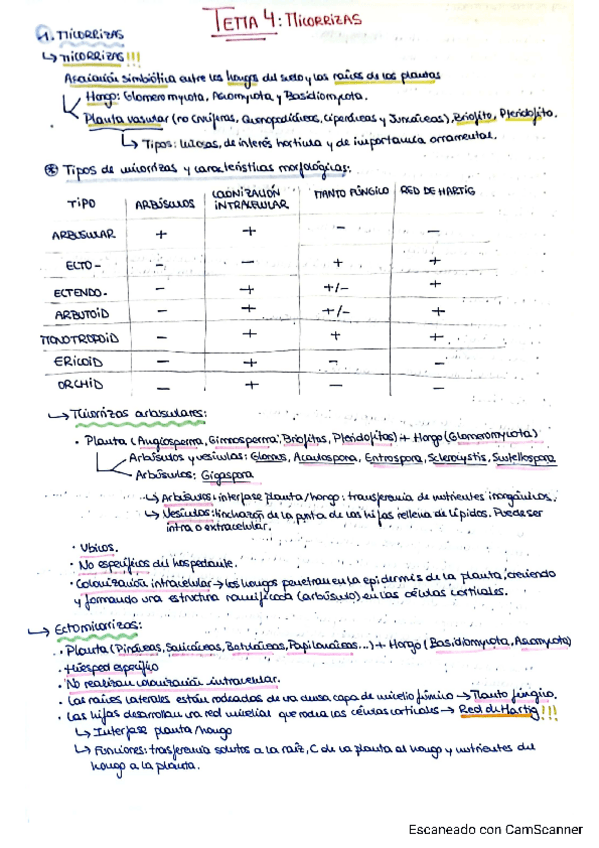 TEMA 4: MICORRIZAS
1. MICORRIZAS
↳ MICORRIZAS!!!
Asociación simbiótica entre los hongos del suelo y las raíces de las plantas
Hongo: Glomeromycota, Ascomycota y Basidiomycota.
Planta vascular (no Crucíferas, Quenopodiáceas, Ciperáceas y Juncáceas), Briofito, Pteridofito.
↳ Tipos: leñosas, de interés hortícola y de importancia ornamental.
* Tipos de micorrizas y características morfológicas:
TIPO ARBÚSCULOS COLONIZACIÓN INTRACELULAR MANTO FÚNGICO RED DE HARTIG
ARBUSCULAR + + - -
ECTO- - - + +
ECTENDO- - + +/- +
ARBUTOID - + +/- +
MONOTROPOID - + + +
ERICOID - + - -
ORCHID - + - -
↳ Micorrizas arbusculares:
· Planta (Angiosperma, Gimnosperma, Briofitas, Pteridofitas) + Hongo (Glomeromycota)
Arbúsculos y vesículas: Glomus, Acaulospora, Entrospora, Sclerocystis, Scutellospora
Arbúsculos: Gigaspora
↳ Arbúsculos: interfase planta/hongo: transferencia de nutrientes inorgánicos.
↳ Vesículas: hinchazón de la punta de las hifas rellena de lípidos. Puede ser
intra o extracelular.
· Ubicuos.
· No específicos del hospedante.
· Colonización intracelular → los hongos penetran en la epidermis de la planta, creciendo
y formando una estructura ramificada (arbúsculo) en las células corticales.
↳ Ectomicorrizas:
· Planta (Pináceas, Salicáceas, Betuláceas, Papilonáceas...) + Hongo (Basidiomycota, Ascomycota)
· Huésped específico
· No realizan colonización intracelular.
· Las raíces laterales están rodeadas de una densa capa de micelio fúngico → Manto fúngico.
· Las hifas desarrollan una red micelial que rodea las células corticales → Red de Hartig!!!
↳ Interfase planta/hongo
↳ Funciones: trasferencia solutos a la raíz, C de la planta al hongo y nutrientes del
hongo a la planta.
Escaneado con CamScanner